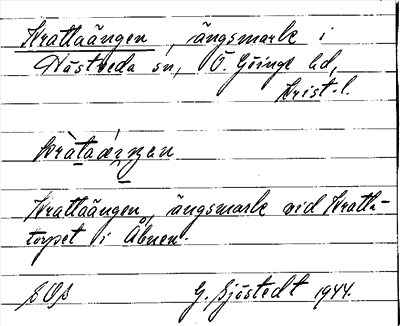 Krattaängen, ängsmark i
Hästveda sn, Ö. Göinge hd,
Krist. l.
kràtaǽŋən
Krattaängen, ängsmark vid Kratta-
torpet i Åbuen.
G. Sjöstedt 1944.